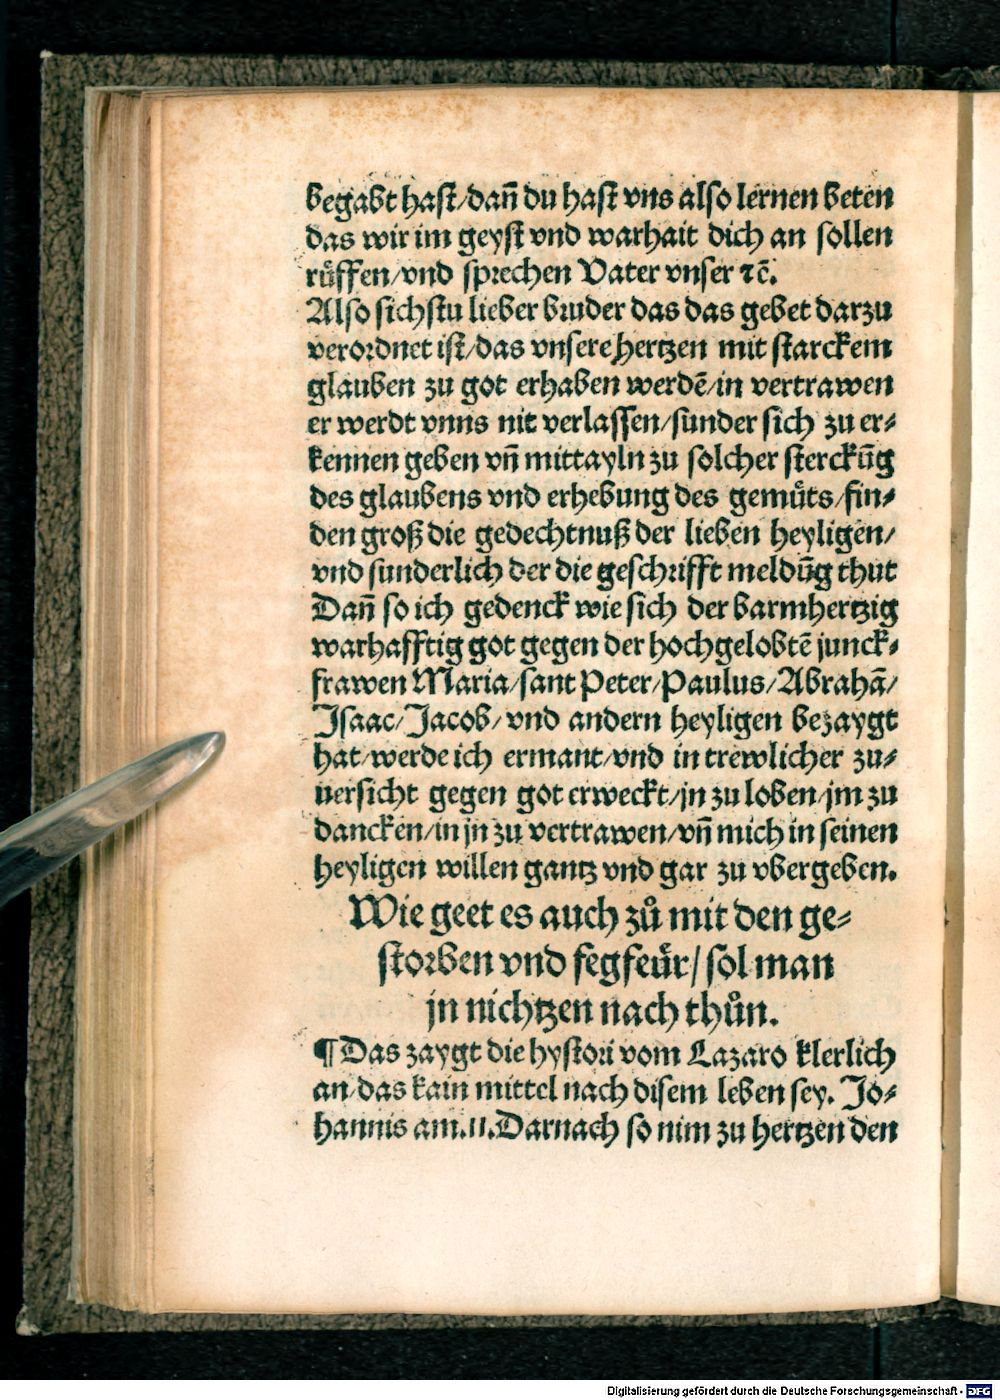 begabt hast/dañ du hast vns also lernen beten
das wir im geyst vnd warhait dich an sollen
rüffen/vnd sprechen Vater vnser ⁊c̄.
Also sichstu lieber bruder das das gebet darzu
verordnet ist/das vnsere hertzen mit starckem
glauben zu got erhaben werdē/in vertrawen
er werdt vnns nit verlassen/sunder sich zu er⸗
kennen geben vñ mittayln zu solcher sterckūg
des glaubens vnd erhebung des gemüts/fin⸗
den groß die gedechtnuß der lieben heyligen/
vnd sunderlich der die geschrifft meldūg thut
Dañ so ich gedenck wie sich der barmhertzig
warhafftig got gegen der hochgelobtē junck⸗
frawen Maria/sant Peter/Paulus/Abrahā/
Isaac/Jacob/vnd andern heyligen bezaygt
hat/werde ich ermant/vnd in trewlicher zu⸗
uersicht gegen got erweckt/jn zu loben/jm zu
dancken/in jn zu vertrawen/vñ mich in seinen
heyligen willen gantz vnd gar zu vbergeben.
Wie geet es auch zů mit den ge⸗
storben vnd fegfeür/sol man
jn nichtzen nach thůn.
¶ Das zaygt die hystori vom Lazaro klerlich
an/das kain mittel nach disem leben sey. Jo⸗
hannis am.11.Darnach so nim zu hertzen den
Digitalisierung gefördert durch die Deutsche Forschungsgemeinschaft - DFG